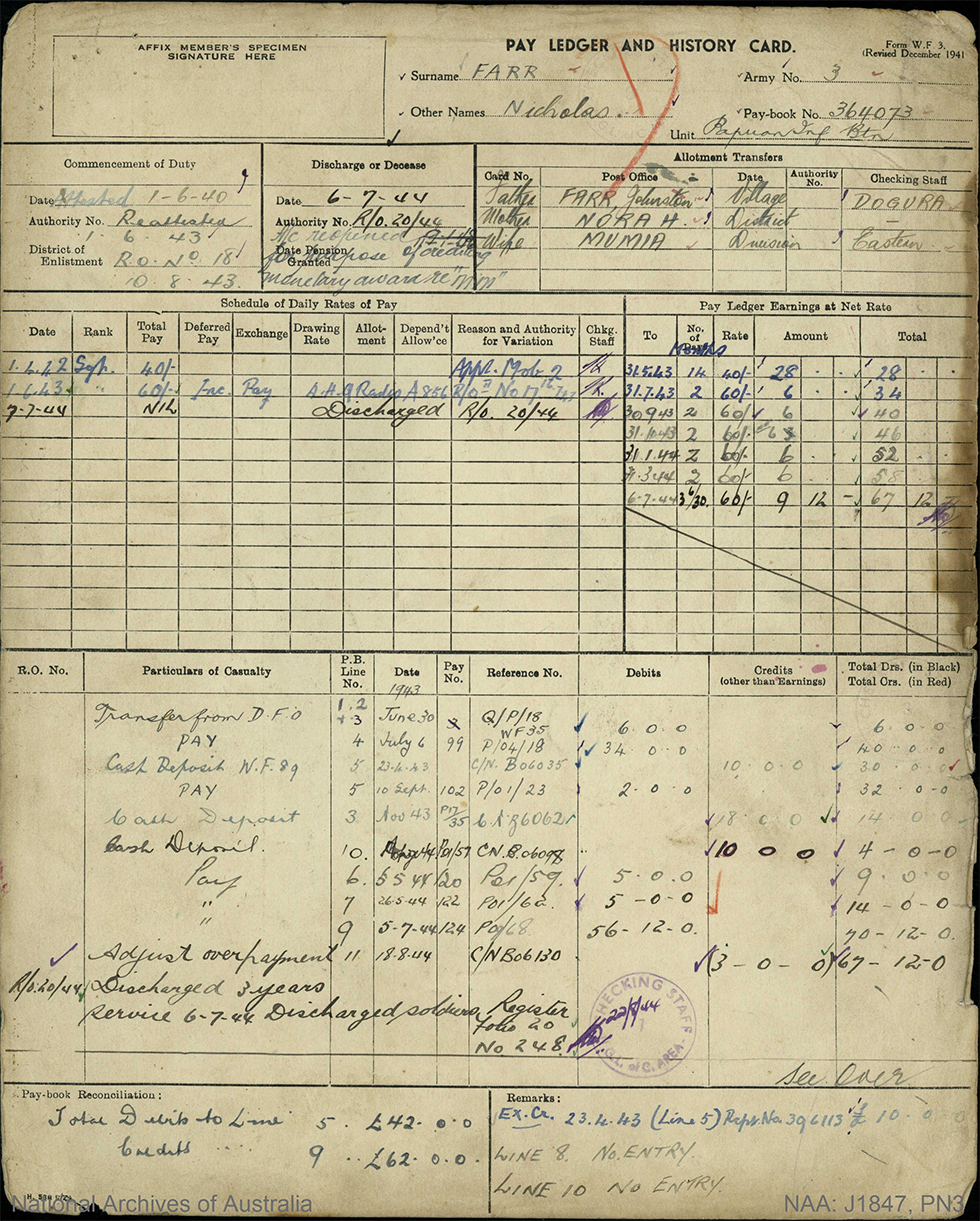 AFFIX MEMBER'S SPECIMEN
SIGNATURE HERE
PAY LEDGER AND HISTORY CARD.
Form W.F. 3.
(Revised December 1941
Surname FARR
Army No. 3
Other Names Nicholas.
Pay-book No. 364073
Unit Papuan Inf Btn
Commencement of Duty
Date Attested 1-6-40
Authority No. Reattested
1 · 6 · 43
District of
Enlistment R.O. No. 18
10 . 8 . 43.
Discharge or Decease
Date 6-7-44
Authority No. R/o. 20/44
A/c reopened
Date Pension
Granted
for purpose of crediting
monetary award re "MM"
Allotment Transfers
Card No. Post Office Date Authority No. Checking Staff
Father FARR, Johnston Village DOGURA
Mother NORA H. District —
Wife MUMIA Division Eastern
Schedule of Daily Rates of Pay
Date Rank Total Pay Deferred Pay Exchange Drawing Rate Allot-ment Depend't Allow'ce Reason and Authority for Variation Chkg. Staff
1.4.42 Sgt. 40/-
1.6.43 60/- Inc. Pay R/O No 17
7-7-44 NIL Discharged R/o. 20/44
Pay Ledger Earnings at Net Rate
To No. of Months Rate Amount Total
31.5.43 14 40/- 28 · · 28 · ·
31.7.43 2 60/- 6 · · 34
30.9.43 2 60/- 6 40
2 60/- 46
31.1.44 2 60/- 6 52
31.3.44 2 60/- 6 58
6-7-44 3 6/30. 60/- 9 12 - 67 12
R.O. No. Particulars of Casualty P.B. Line No. Date Pay No. Reference No. Debits Credits (other than Earnings) Total Drs. (in Black) Total Crs. (in Red)
1943
Transfer from D.F.O 1.2 + 3 June 30 Q/P/18 WF35 6.0.0 6.0.0
PAY 4 July 6 99 P/04/18 34.0.0 40.0.0
Cash Deposit W.F. 89 5 23.4.43 C/N. B06035 10.0.0 30.0.0
PAY 5 10 Sept. 102 P/01/23 2.0.0 32.0.0
Cash Deposit 3 Nov 43 18 0 0 14 0 0
Cash Deposit. 10. 10 0 0 4-0-0
Pay 6. 5.5.44 120 5.0.0 9.0.0
" 7 26.5.44 122 5-0-0 14-0-0
" 9 5-7-44 124 56-12-0. 70-12-0
Adjust overpayment 11 18.8.44 C/N B06130 3-0-0 67-12-0
R/o.20/44 Discharged 3 years
service 6-7-44 Discharged soldiers Register
Folio 20
No 248.
CHECKING STAFF
22/8/44
G.L. of C. AREA
See Over
Pay-book Reconciliation :
Total Debits to Line 5. £42.0.0
Credits 9 .. £62.0.0
Remarks :
Ex. Cr. 23.4.43 (Line 5) Rept. No. 396113 £ 10.0.0
LINE 8. NO ENTRY.
LINE 10 NO ENTRY
National Archives of Australia
NAA: J1847, PN3